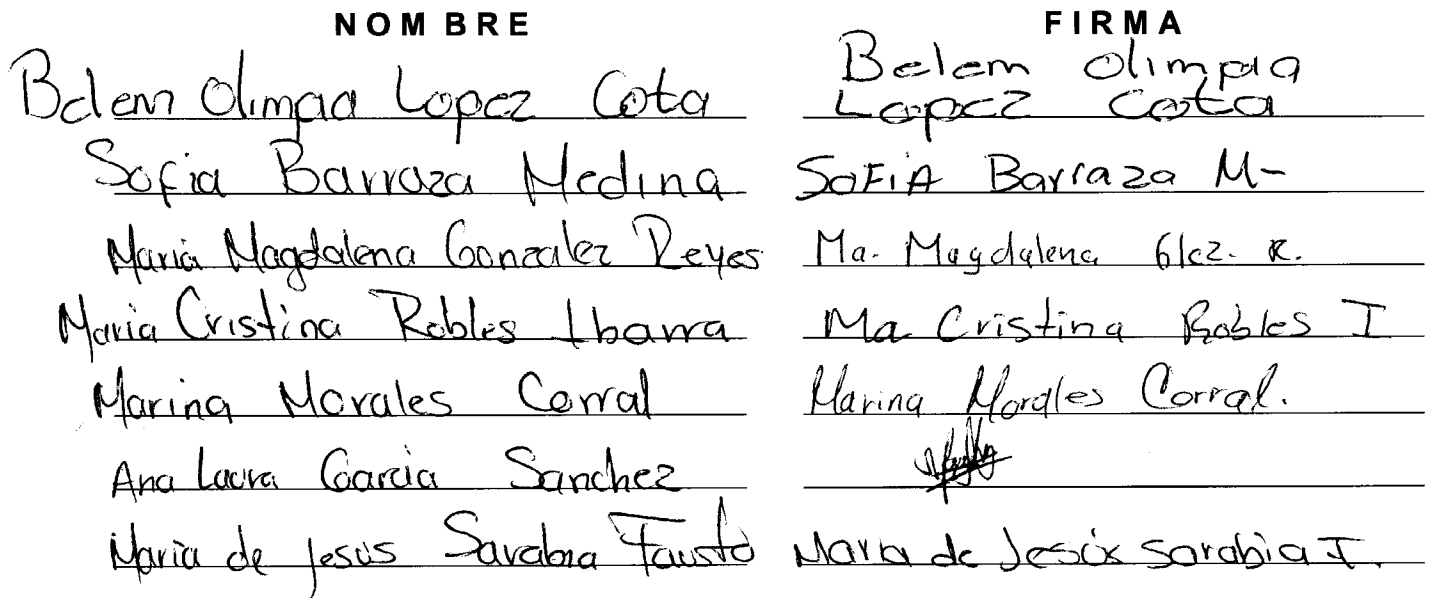 NOMBRE FIRMA
Belem Olimpia Lopez Cota Belem Olimpia
Lopez Cota
Sofia Barraza Medina SOFIA Barraza M-
Maria Magdalena Gonzalez Reyes Ma. Magdalena Glez. R.
Maria Cristina Robles Ibarra Ma Cristina Robles I
Marina Morales Corral Marina Morales Corral.
Ana Laura Garcia Sanchez
Maria de Jesus Sarabia Fausto Maria de Jesús Sarabia